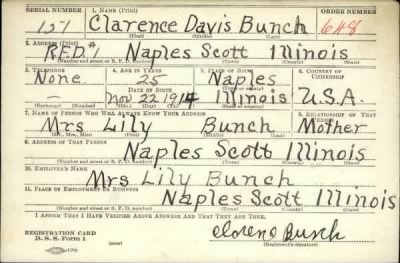 SERIAL NUMBER 1. NAME (Print) ORDER NUMBER
151 Clarence Davis Bunch 648
(First) (Middle) (Last)
2. ADDRESS (Print)
R.F.D. #1 Naples Scott Illinois
(Number and street or R. F. D. number) (Town) (County) (State)
3. TELEPHONE 4. AGE IN YEARS 5. PLACE OF BIRTH 6. COUNTRY OF CITIZENSHIP
None 25 Naples
DATE OF BIRTH (Town or county)
Nov 29 1914 Illinois U.S.A.
(Exchange) (Number) (Mo.) (Day) (Yr.) (State or country)
7. NAME OF PERSON WHO WILL ALWAYS KNOW YOUR ADDRESS 8. RELATIONSHIP OF THAT PERSON
Mrs Lily Bunch Mother
(Mr., Mrs., Miss) (First) (Middle) (Last)
9. ADDRESS OF THAT PERSON
Naples Scott Illinois
(Number and street or R. F. D. number) (Town) (County) (State)
10. EMPLOYER'S NAME
Mrs Lily Bunch
11. PLACE OF EMPLOYMENT OR BUSINESS
Naples Scott Illinois
(Number and street or R. F. D. number) (Town) (County) (State)
I AFFIRM THAT I HAVE VERIFIED ABOVE ANSWERS AND THAT THEY ARE TRUE.
REGISTRATION CARD
D. S. S. Form 1 Bunch
(Registrant's signature)